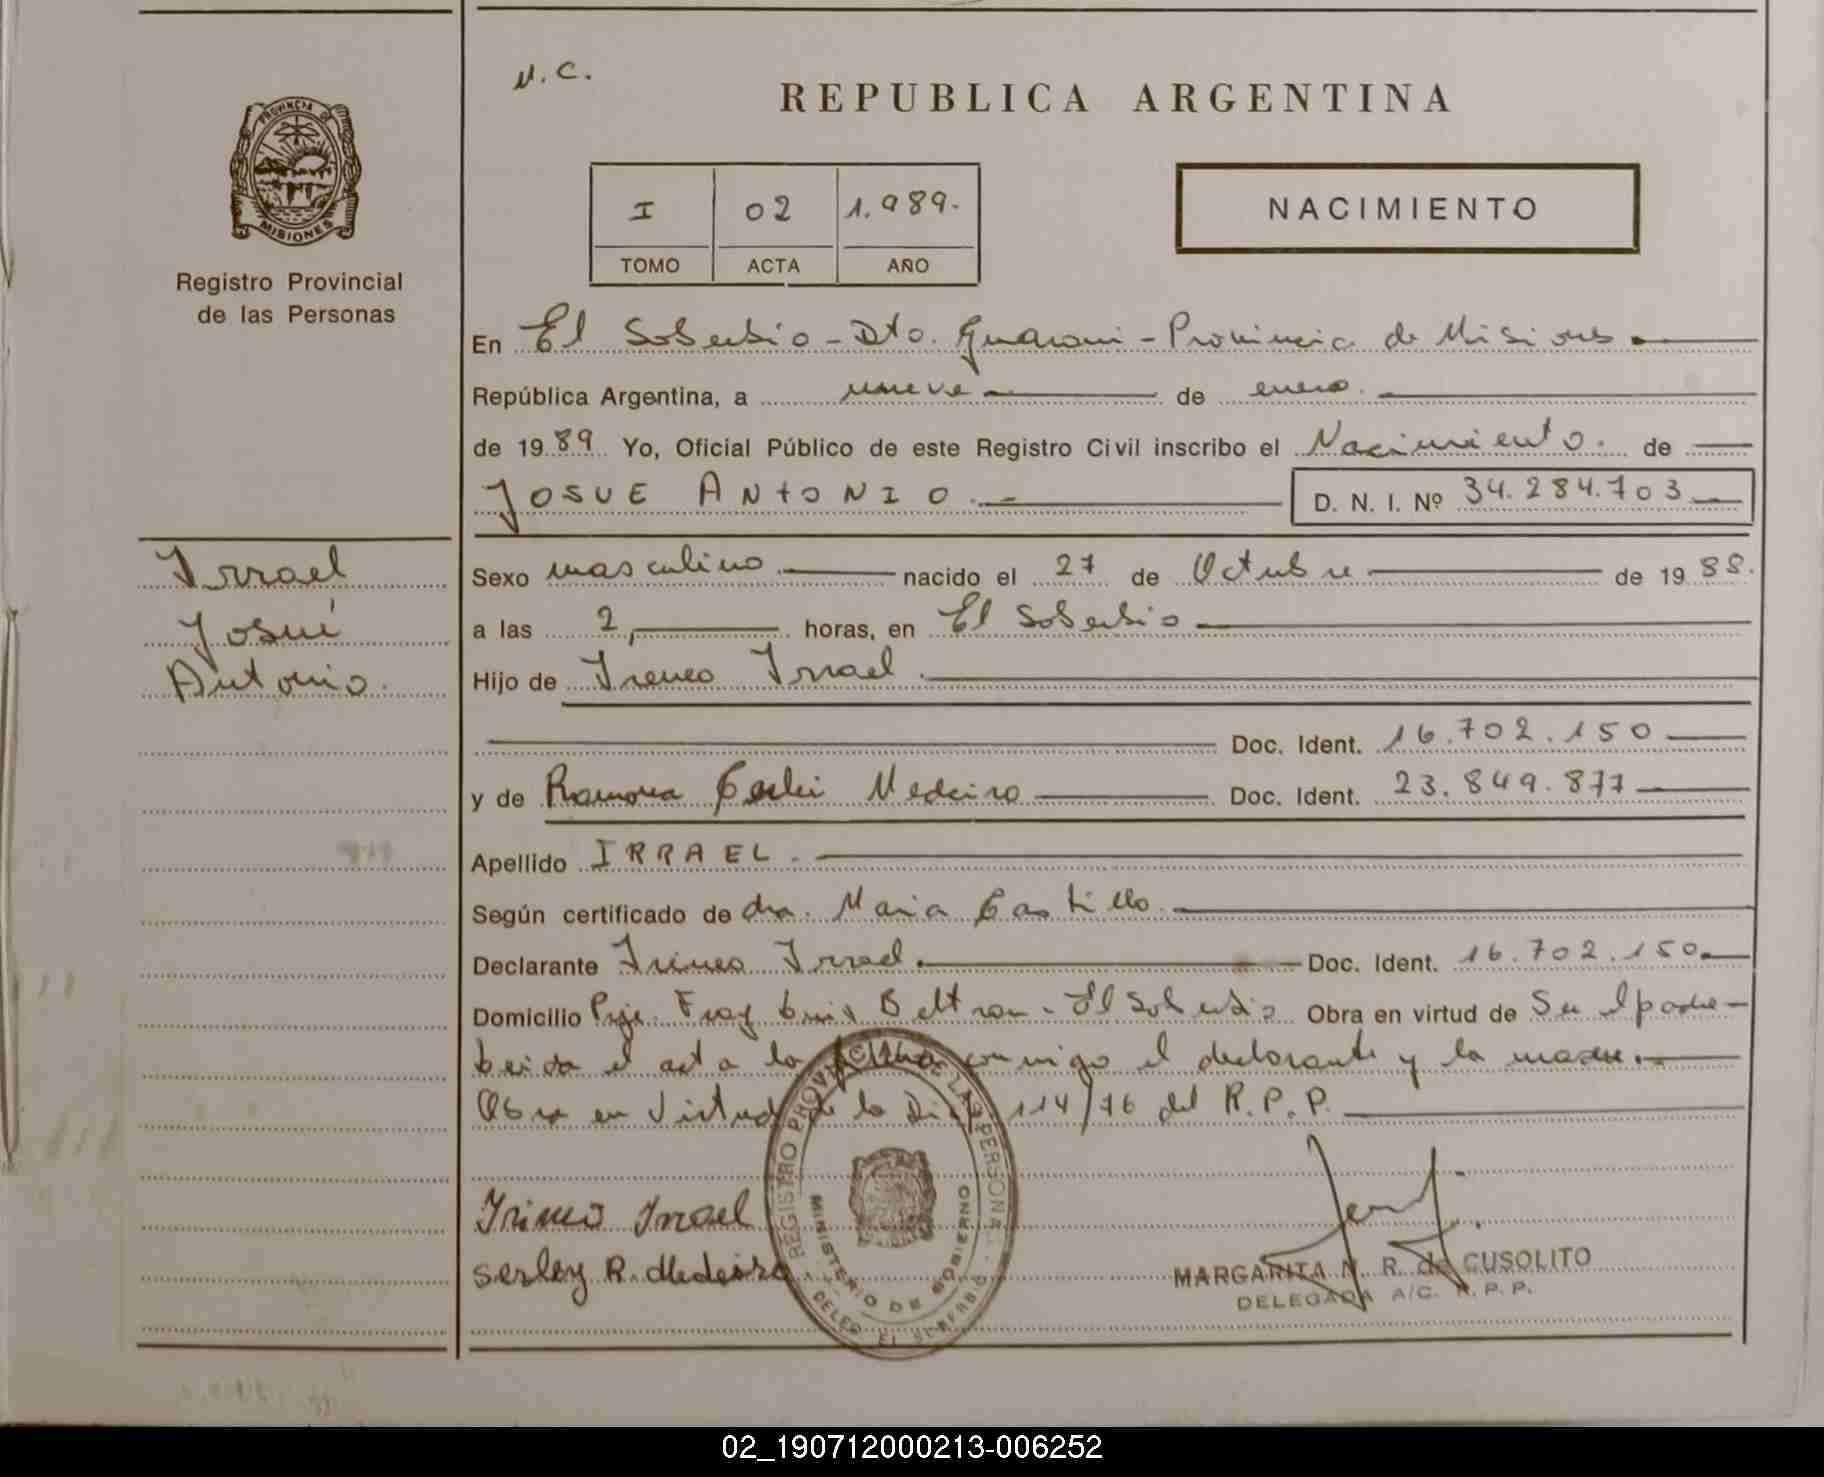 N. C.
REPUBLICA ARGENTINA
PROVINCIA DE
MISIONES
I 02 1.989.
TOMO ACTA AÑO
NACIMIENTO
Registro Provincial
de las Personas
En El Soberbio - Dto. Guarani - Provincia de Misiones
República Argentina, a nueve de enero.
de 1989 Yo, Oficial Público de este Registro Civil inscribo el Nacimiento. de
JOSUE ANTONIO. D. N. I. Nº 34.284.703
Irrael
Josué
Antonio.
Sexo masculino nacido el 27 de Octubre de 1988.
a las 2, horas, en El Soberbio
Hijo de Ireneo Irrael.
Doc. Ident. 16.702.150
y de Ramona Medeiro Doc. Ident. 23.849.877
Apellido IRRAEL.
Según certificado de dra. Maria Castillo
Declarante Ireneo Irrael. Doc. Ident. 16.702.150
Domicilio Pje. Fray Luis Beltran - El Soberbio Obra en virtud de Su
el acta la conmigo el declarante y la madre.
Obra en Virtud de la 114/76 del R.P.P.
Irineo Irrael
Serley R. Medeiro
REGISTRO PROVINCIAL DE LAS PERSONAS
MINISTERIO DE GOBIERNO
DELEG. EL SOBERBIO
MARGARITA N. R. de CUSOLITO
DELEGADA A/C. R.P.P.
02_190712000213-006252